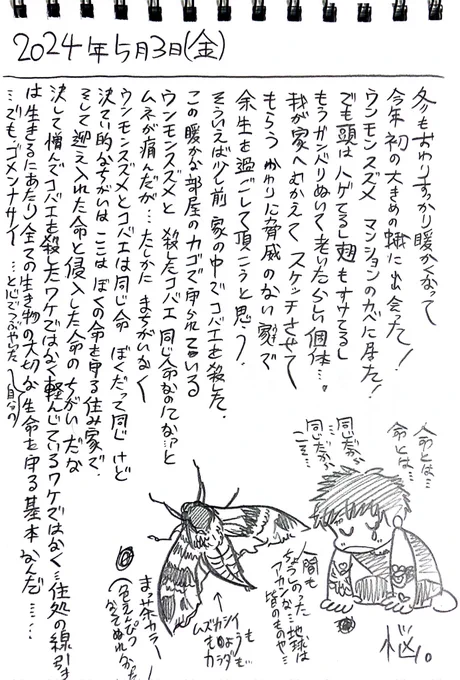 2024年5月3日(金)
冬もおわりすっかり暖かくなって
今年初の大きめの蛾に出会った!
ウンモンスズメ マンションのカベに居た!
でも頭はハゲてるし翅もすけてるし
もうガンバりぬいて老いたらしい個体…。
我が家へむかえて スケッチさせて
もらうかわりに脅威のない家で
余生を過ごして頂こうと思う。
そういえば少し前 家の中でコバエを殺した。
この暖かな部屋のカゴで守られている
ウンモンスズメと 殺したコバエ 同じ命なのにな…?と
ムネが痛んだが…たしかに まちがいなく
ウンモンスズメとコバエは同じ命 ぼくだって同じ けど
決てい的なちがいは ここは ぼくの命を守る住み家で、
そして迎え入れた命と侵入した命のちがい だな
決して憎んでコバエを殺したワケではなく軽んじているワケではなく…住処の線引き
は生きるにあたり全ての生き物の大切な生命を守る基本なんだ……
…でも、ゴメンナサイ …と心でつぶやいた
自分の
命とは…
命とは…
同じだが…
同じだから
こそ…
人間も
アカンな…地球は
皆のものや…
ムズカシイ
もようも
カラダも…
まっ茶カラー
悩。